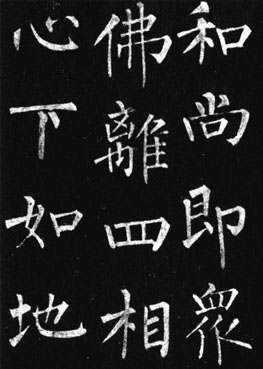 和尚即眾
佛離四相
心下如地